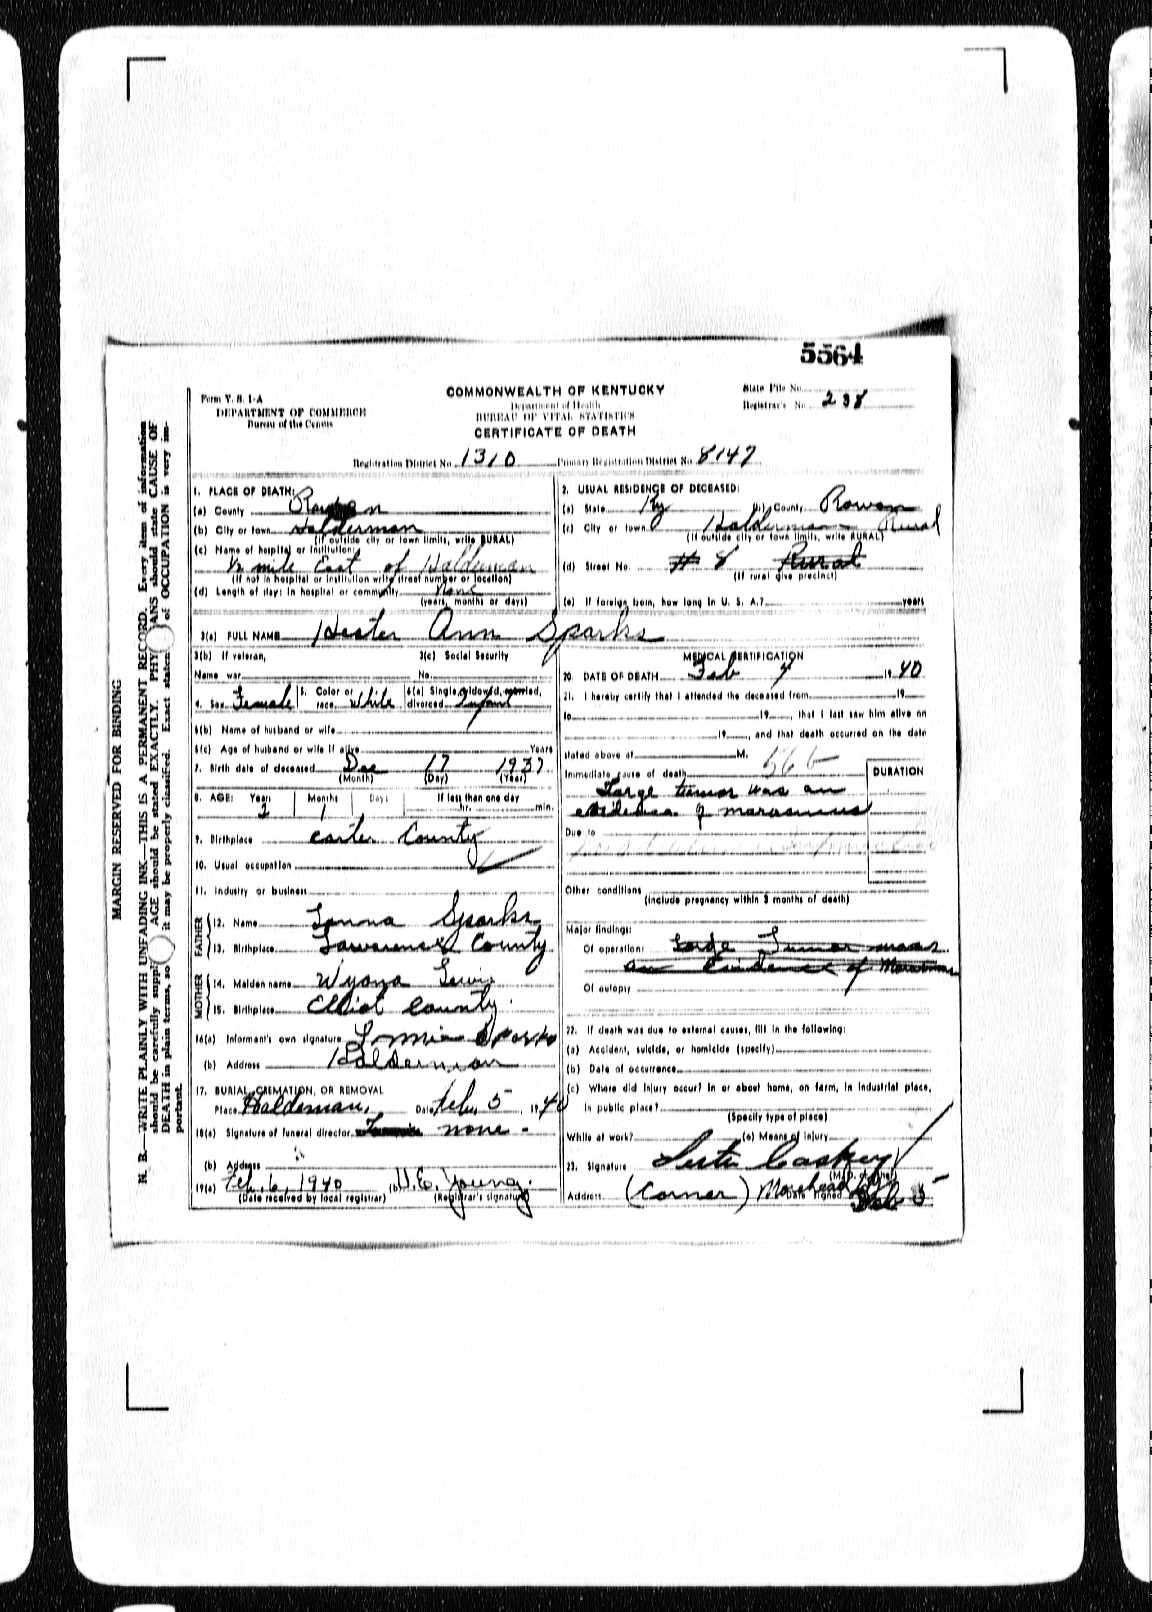 5564
Form V. S. 1-A
DEPARTMENT OF COMMERCE
Bureau of the Census
COMMONWEALTH OF KENTUCKY
Department of Health
BUREAU OF VITAL STATISTICS
CERTIFICATE OF DEATH
State File No.
Registrar's No. 238
Registration District No. 1310 Primary Registration District No. 8147
MARGIN RESERVED FOR BINDING
N. B.—WRITE PLAINLY WITH UNFADING INK—THIS IS A PERMANENT RECORD. Every item of information
should be carefully AGE should be stated EXACTLY. should state CAUSE OF
DEATH in plain terms, so it may be properly classified. Exact of OCCUPATION is very im-
portant.
1. PLACE OF DEATH:
(a) County Rowan
(b) City or town Halderman
(If outside city or town limits, write RURAL)
(c) Name of hospital or institution:
½ mile East of Haldeman
(If not in hospital or institution write street number or location)
(d) Length of stay: In hospital or community None
(years, months or days)
2. USUAL RESIDENCE OF DECEASED:
(a) State Ky (b) County Rowan
(c) City or town Halderman Rural
(If outside city or town limits, write RURAL)
(d) Street No. # 8 Rural
(If rural give precinct)
(e) If foreign born, how long in U. S. A.? years
3(a) FULL NAME Hester Ann Sparks
3(b) If veteran, 3(c) Social Security
Name war No.
4. Sex Female 5. Color or race White 6(a) Single, widowed, married, divorced Infant
6(b) Name of husband or wife
6(c) Age of husband or wife if alive Years
7. Birth date of deceased Dec 17 1937
(Month) (Day) (Year)
8. AGE: Years Months Days If less than one day
2 1 hr. min.
9. Birthplace Carter County
10. Usual occupation
11. Industry or business
FATHER
12. Name Sparks
13. Birthplace County
MOTHER
14. Maiden name
15. Birthplace Elliot County.
16(a) Informant's own signature Sparks
(b) Address Halderman
17. BURIAL, CREMATION, OR REMOVAL
Place Haldeman, Date Feb. 5 1940
18(a) Signature of funeral director none -
(b) Address
19(a) Feb. 6, 1940 (b) H. E. Young.
(Date received by local registrar) (Registrar's signature)
MEDICAL CERTIFICATION
20. DATE OF DEATH Feb 4 1940
21. I hereby certify that I attended the deceased from 19
to 19 , that I last saw him alive on
19 , and that death occurred on the date
stated above at M.
Immediate cause of death DURATION
Large tumor was an
evidence of marasmus
Due to
Other conditions
(include pregnancy within 3 months of death)
Major findings:
Of operation: Large Tumor
an Evidence of
Of autopsy
22. If death was due to external causes, fill in the following:
(a) Accident, suicide, or homicide (specify)
(b) Date of occurrence
(c) Where did injury occur? In or about home, on farm, in industrial place,
in public place?
(Specify type of place)
While at work? (e) Means of injury
23. Signature Lester Caskey
(M.D. or other)
Address (Corner) Morehead Date signed Feb 5